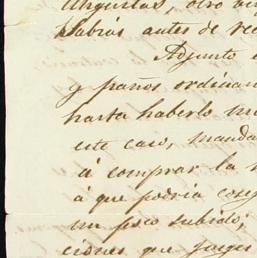 Angustias, otro
Habrás antes de
Adjunto
y paños ordinar
hasta haberlo
este caso, manda
á comprar la
á que podria
un poco subido;
ciones que juzges